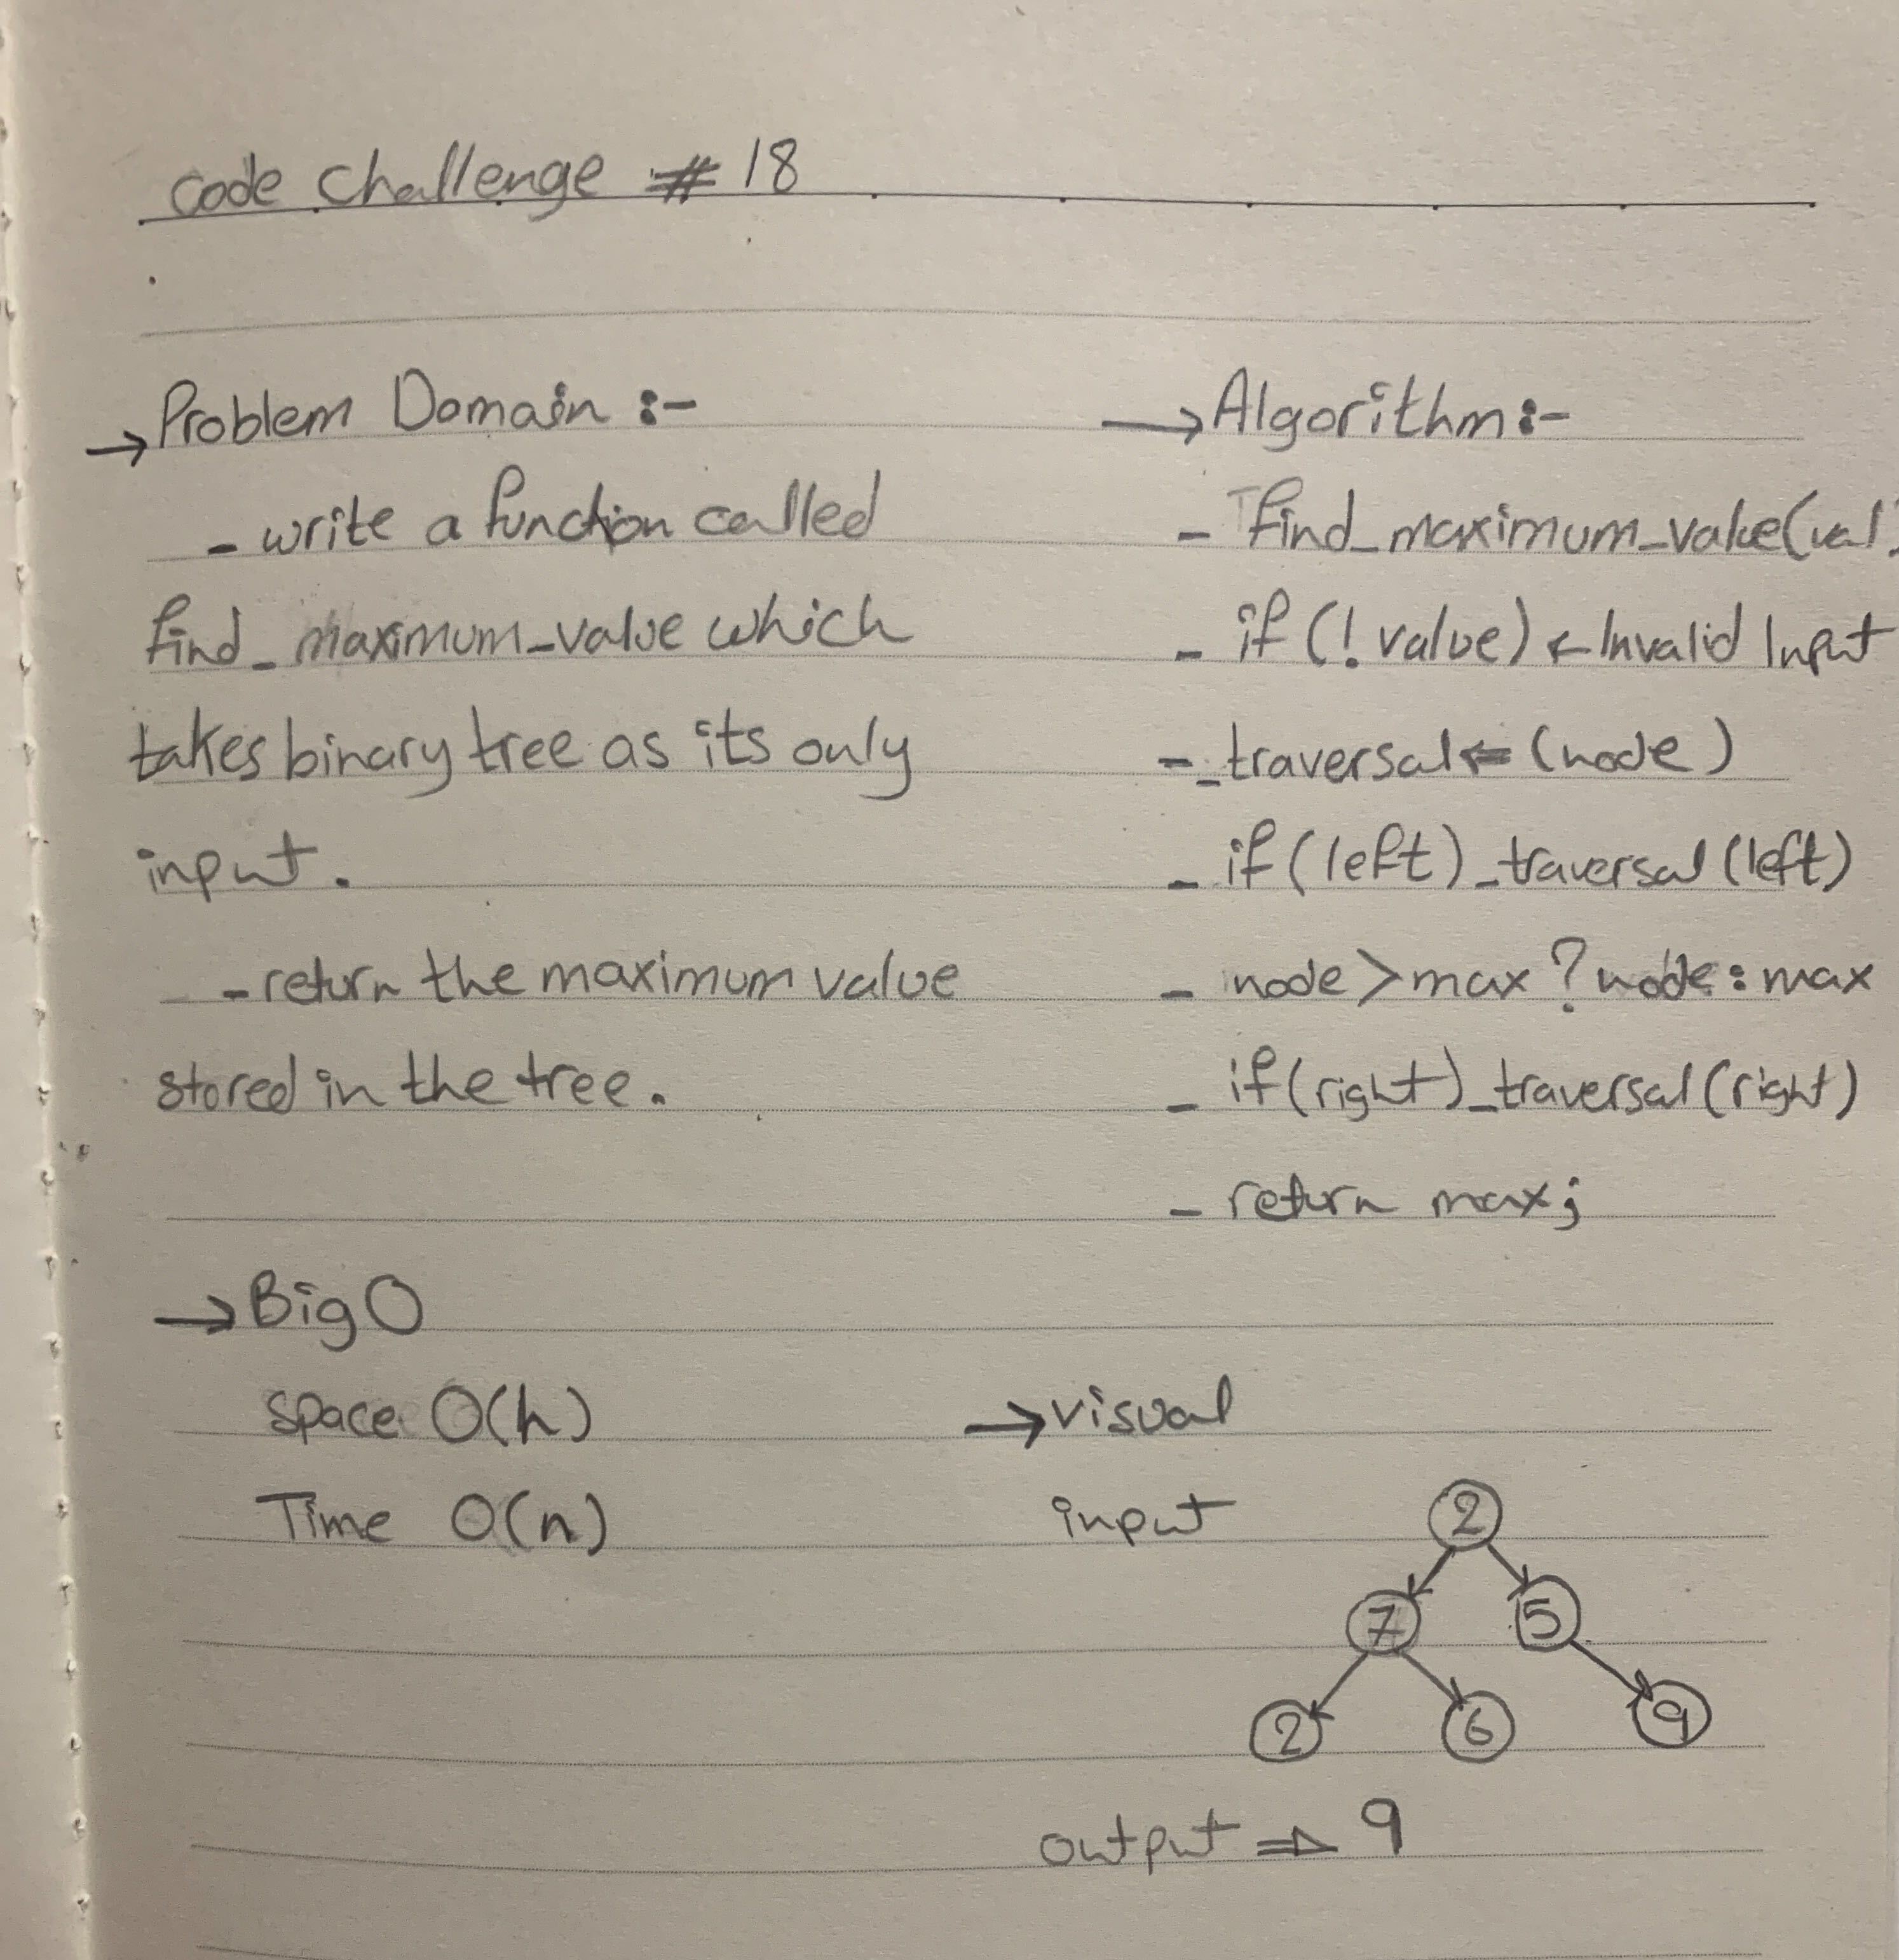 Code Challenge # 18
→ Problem Domain :-
- write a function called
find_maximum_value which
takes binary tree as its only
input.
- return the maximum value
stored in the tree.
→ Algorithm :-
- find_maximum_value(val
- if (! value) ← Invalid Input
- _traversal ⇐ (node)
- if (left) _traversal (left)
- node > max ? node : max
- if (right) _traversal (right)
- return max;
→ Big O
space O(h)
Time O(n)
→ visual
input
2
7 5
2 6 9
output ⇒ 9